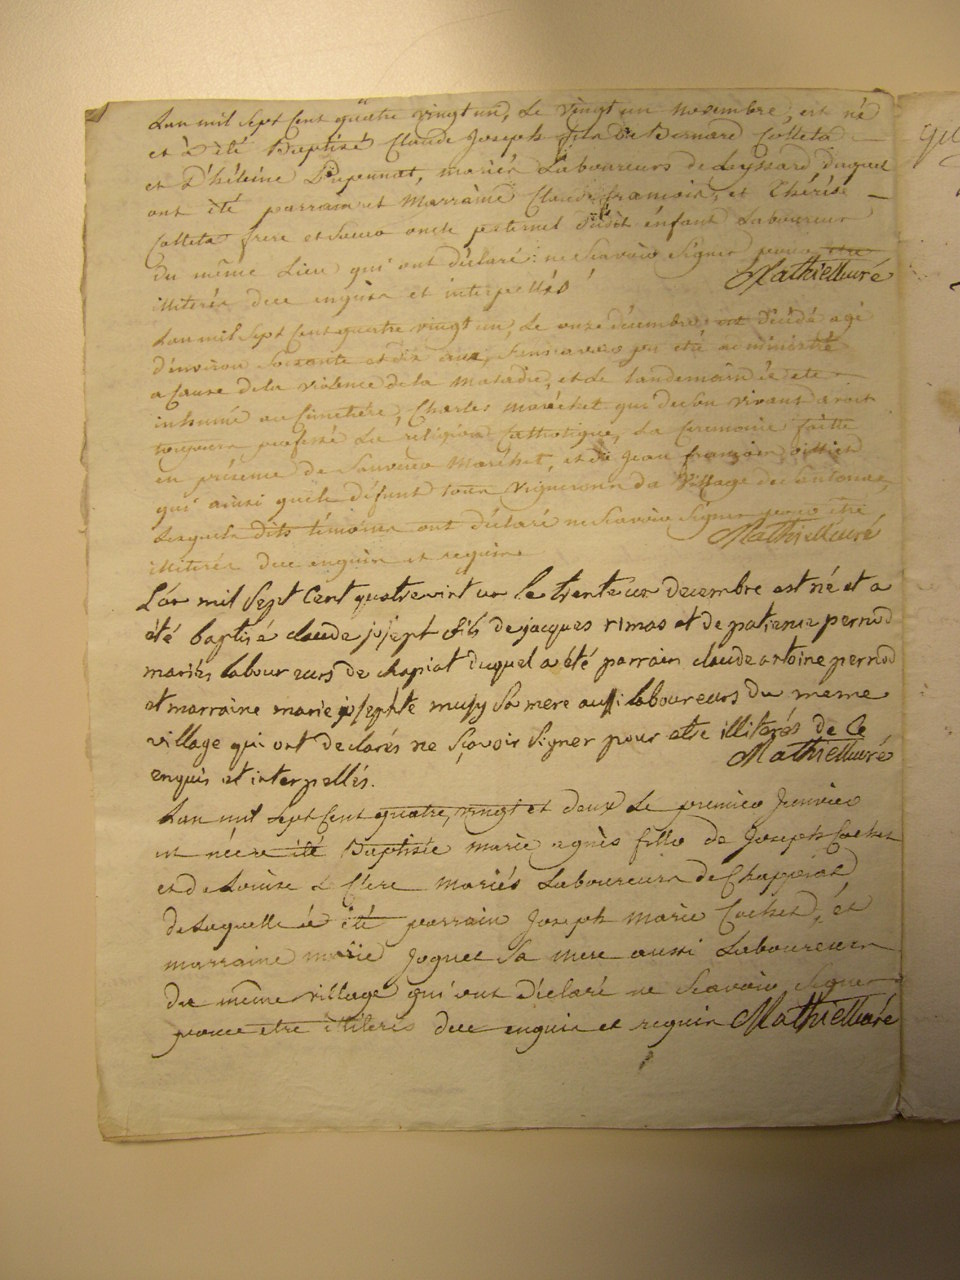 Lan mil sept Cent quatre vingt un, Le vingt un novembre, est né
et à été Baptisé Claude Joseph fils de Bernard Colleta
et d'héleine Dupeunat, mariés Laboureurs de Leyssard duquel
ont été parrain et Marraine Claude francois, et Thérèse
Colleta frere et Soeur oncle paternel dudit énfant Laboureur
du même Lieu qui ont déclaré ne Scavoir Signer pour etre
illiterés de ce enquis et interpellés Mathieu curé
Lan mil Sept Cent quatre vingt un, Le onze décembre est décédé agé
d'environ Soixante et dix ans, Sans avoir pu etre administré
a Cause de la violence de la maladie, et Le landemain à été
inhumé au Cimetiére, Charles Maréchet qui de Son vivant avoit
toujours professé La réligion Catholique, La Ceremonie faitte
en présence de Maréchet, et de Jean francois
qui ainsi que le défunt tous vignerons du village de
Lesquels dits témoins ont déclaré ne Scavoir Signer pour étre
illiterés de ce enquis et requis Mathieu curé
L'an mil sept Cent quatrevint un le trente un decembre est né et a
été baptisé claude josept fils de jacques rimas et de patience pernod
mariés laboureurs de chapiat duquel a été parrain claude antoine pernod
et marraine marie josephte musy Sa mere aussi laboureurs du meme
village qui ont declarés ne sçavoir signer pour etre illiterés de Ce
enquis et interpellés. Mathieu curé
Lan mil sept Cent quatre vingt et deux Le premier Janvier
est née et a été Baptisée marie agnès fille de Joseph Cochet
et de Louise Le Clerc mariés Laboureurs de Chappiat
de Laquelle à été parrain Joseph marie Cochet, ét
marraine marie Joguet Sa mere aussi Laboureurs
du même village qui ont déclaré ne Scavoir Signer
pour etre illiterés de ce enquis et requis Mathieu curé